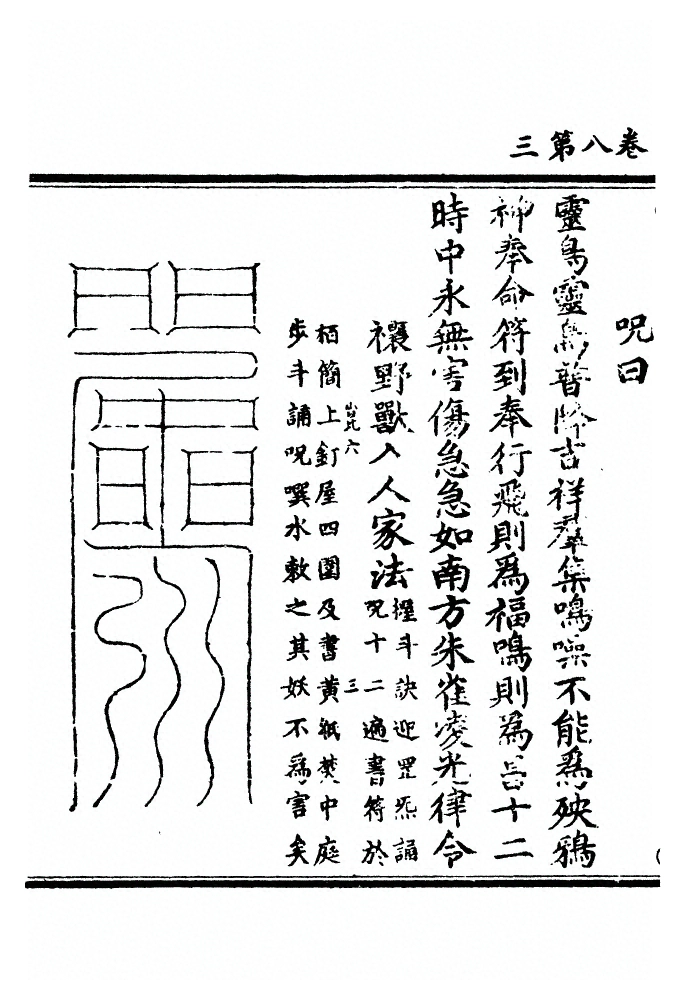 卷八第三
呪曰
靈鳥靈鳥普降吉祥羣集鳴噪不能為殃鴉
神奉命符到奉行飛則為福鳴則為吉十二
時中永無害傷急急如南方朱雀凌光律令
禳野獸入人家法
握斗訣迎罡炁誦
呪十二遍書符於
六
三
栢簡上釘屋四圍及書黃紙焚中庭
步斗誦呪噀水敕之其妖不為害矣